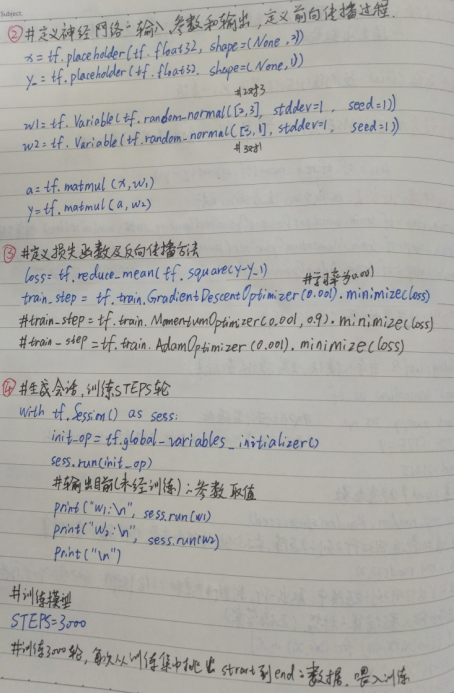 Subject.
②#定义神经网络之输入、参数和输出,定义前向传播过程.
x=tf.placeholder(tf.float32, shape=(None,2))
y_=tf.placeholder(tf.float32, shape=(None,1))
#2对3
w1=tf.Variable(tf.random_normal([2,3], stddev=1, seed=1))
w2=tf.Variable(tf.random_normal([3,1], stddev=1, seed=1))
#3对1
a=tf.matmul(x,w1)
y=tf.matmul(a,w2)
③#定义损失函数及反向传播方法
loss=tf.reduce_mean(tf.square(y-y_))
#学习率为0.001
train_step = tf.train.GradientDescentOptimizer(0.001).minimize(loss)
#train_step=tf.train.MomentumOptimizer(0.001,0.9).minimize(loss)
#train_step=tf.train.AdamOptimizer(0.001).minimize(loss)
④#生成会话,训练STEPS轮
with tf.Session() as sess:
init_op=tf.global_variables_initializer()
sess.run(init_op)
#输出目前(未经训练)之参数取值
print("w1:\n", sess.run(w1)
print("w2:\n", sess.run(w2)
print("\n")
#训练模型
STEPS=3000
#训练3000轮,每次从训练集中挑出strart到end之数据,喂入训练